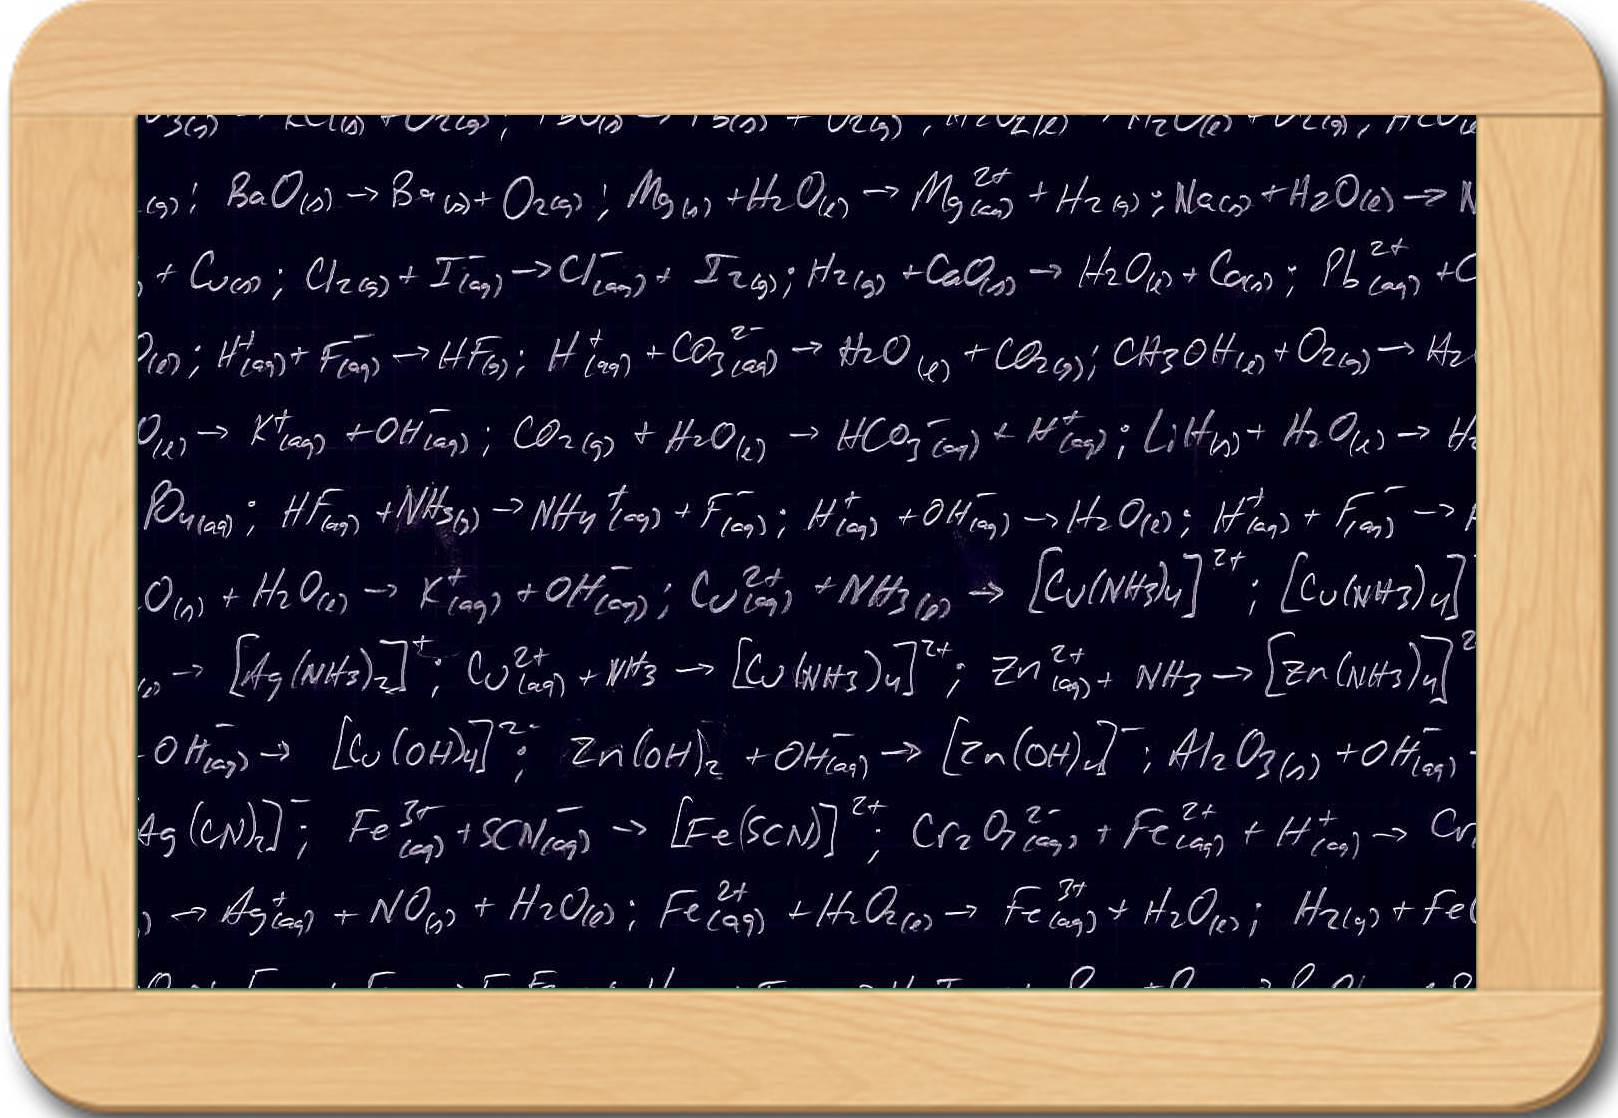 O3(s) → KCl(s) + O2(g); PbO(s) → Pb(s) + O2(g); H2O2(l) → H2O(l) + O2(g);
(g); BaO(s) → Ba(s) + O2(g); Mg(s) + H2O(l) → Mg²⁺(aq) + H2(g); Na(s) + H2O(l) → N
) + Cu(s); Cl2(g) + I⁻(aq) → Cl⁻(aq) + I2(g); H2(g) + CaO(s) → H2O(l) + Ca(s); Pb²⁺(aq) + C
O(l); H⁺(aq) + F⁻(aq) → HF(g); H⁺(aq) + CO3²⁻(aq) → H2O(l) + CO2(g); CH3OH(l) + O2(g) → H2
O(l) → K⁺(aq) + OH⁻(aq); CO2(g) + H2O(l) → HCO3⁻(aq) + H⁺(aq); LiH(s) + H2O(l) → H2
PO4(aq); HF(aq) + NH3(g) → NH4⁺(aq) + F⁻(aq); H⁺(aq) + OH⁻(aq) → H2O(l); H⁺(aq) + F⁻(aq) →
O(s) + H2O(l) → K⁺(aq) + OH⁻(aq); Cu²⁺(aq) + NH3(g) → [Cu(NH3)4]²⁺; [Cu(NH3)4]
(l) → [Ag(NH3)2]⁺; Cu²⁺(aq) + NH3 → [Cu(NH3)4]²⁺; Zn²⁺(aq) + NH3 → [Zn(NH3)4]²
OH⁻(aq) → [Cu(OH)4]²⁻; Zn(OH)2 + OH⁻(aq) → [Zn(OH)4]⁻; Al2O3(s) + OH⁻(aq)
Ag(CN)2]⁻; Fe³⁺(aq) + SCN⁻(aq) → [Fe(SCN)]²⁺; Cr2O7²⁻(aq) + Fe²⁺(aq) + H⁺(aq) → Cr
) → Ag⁺(aq) + NO(g) + H2O(l); Fe²⁺(aq) + H2O2(l) → Fe³⁺(aq) + H2O(l); H2(g) + Fe(